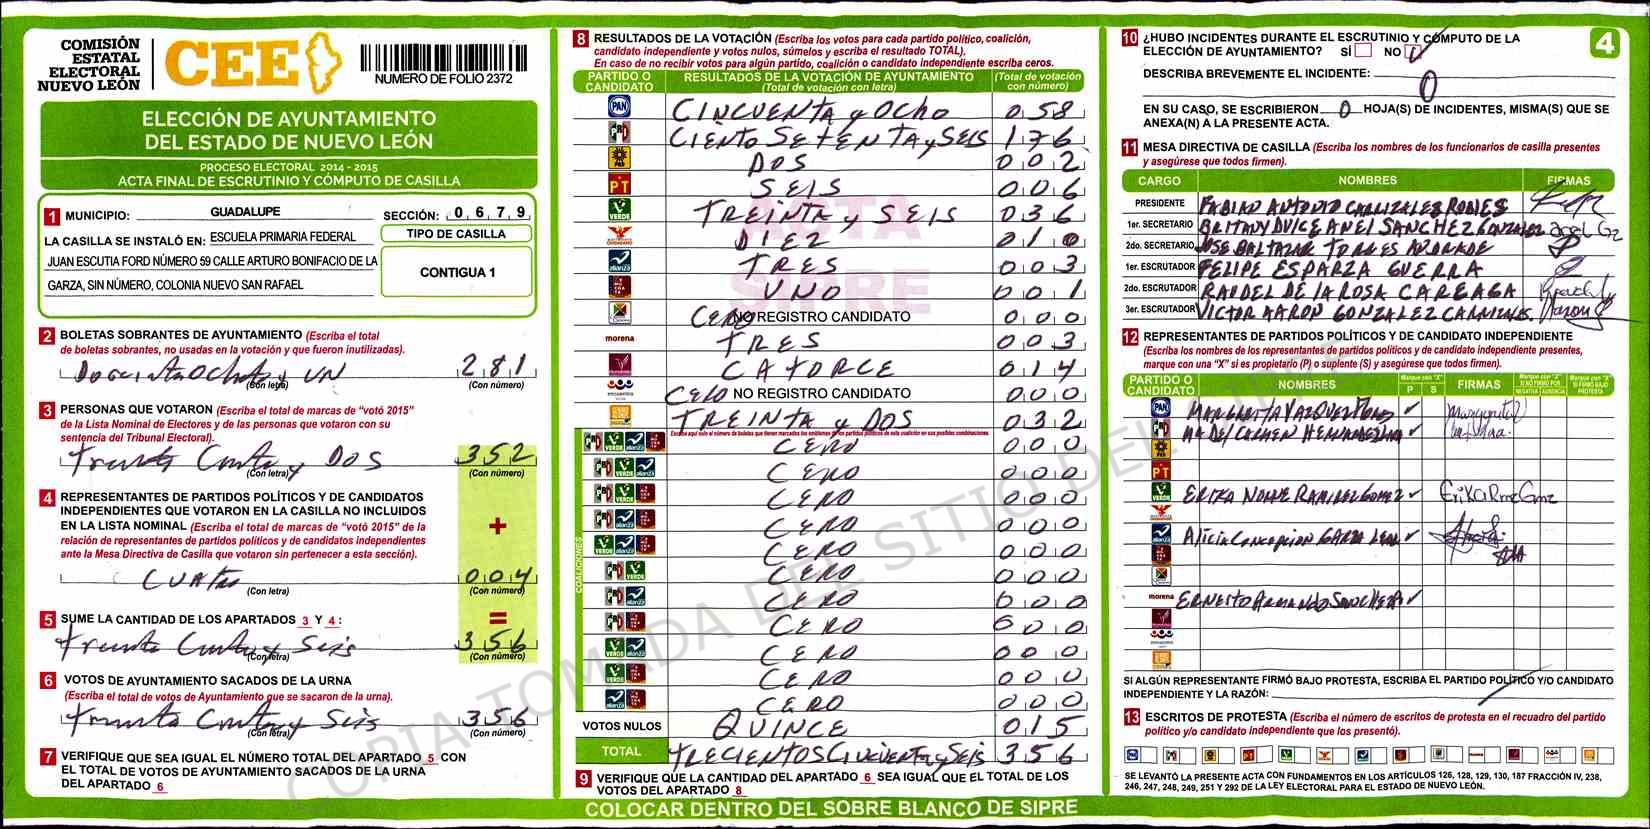 COMISIÓN
ESTATAL
ELECTORAL
NUEVO LEÓN
CEE
NUMERO DE FOLIO 2372
ELECCIÓN DE AYUNTAMIENTO
DEL ESTADO DE NUEVO LEÓN
PROCESO ELECTORAL 2014 - 2015
ACTA FINAL DE ESCRUTINIO Y CÓMPUTO DE CASILLA
1 MUNICIPIO: GUADALUPE SECCIÓN: 0 6 7 9
LA CASILLA SE INSTALÓ EN: ESCUELA PRIMARIA FEDERAL
JUAN ESCUTIA FORD NÚMERO 59 CALLE ARTURO BONIFACIO DE LA
GARZA, SIN NÚMERO, COLONIA NUEVO SAN RAFAEL
TIPO DE CASILLA
CONTIGUA 1
2 BOLETAS SOBRANTES DE AYUNTAMIENTO (Escriba el total
de boletas sobrantes, no usadas en la votación y que fueron inutilizadas).
UN 281
(Con letra) (Con número)
3 PERSONAS QUE VOTARON (Escriba el total de marcas de “votó 2015”
de la Lista Nominal de Electores y de las personas que votaron con su
sentencia del Tribunal Electoral).
y DOS 352
(Con letra) (Con número)
4 REPRESENTANTES DE PARTIDOS POLÍTICOS Y DE CANDIDATOS
INDEPENDIENTES QUE VOTARON EN LA CASILLA NO INCLUIDOS
EN LA LISTA NOMINAL (Escriba el total de marcas de “votó 2015” de la
relación de representantes de partidos políticos y de candidatos independientes
ante la Mesa Directiva de Casilla que votaron sin pertenecer a esta sección).
+
Cuatro 004
(Con letra) (Con número)
5 SUME LA CANTIDAD DE LOS APARTADOS 3 Y 4 :
=
y Seis 356
(Con letra) (Con número)
6 VOTOS DE AYUNTAMIENTO SACADOS DE LA URNA
(Escriba el total de votos de Ayuntamiento que se sacaron de la urna).
y Seis 356
(Con letra) (Con número)
7 VERIFIQUE QUE SEA IGUAL EL NÚMERO TOTAL DEL APARTADO 5 CON
EL TOTAL DE VOTOS DE AYUNTAMIENTO SACADOS DE LA URNA
DEL APARTADO 6
8 RESULTADOS DE LA VOTACIÓN (Escriba los votos para cada partido político, coalición,
candidato independiente y votos nulos, súmelos y escriba el resultado TOTAL).
En caso de no recibir votos para algún partido, coalición o candidato independiente escriba ceros.
PARTIDO O CANDIDATO RESULTADOS DE LA VOTACIÓN DE AYUNTAMIENTO (Total de votación con letra) (Total de votación con número)
PAN CINCUENTA y OCHO 058
PRD CIENTO SETENTA y SEIS 176
PRD DOS 002
PT SEIS 006
VERDE TREINTA y SEIS 036
DIEZ 010
alianza TRES 003
UNO 001
CERO NO REGISTRO CANDIDATO 000
morena TRES 003
CATORCE 014
encuentro CERO NO REGISTRO CANDIDATO 000
TREINTA y DOS 032
COALICIONES
CERO 000
CERO 000
CERO 000
CERO 000
CERO 000
CERO 000
CERO 000
CERO 000
CERO 000
CERO 000
CERO 000
VOTOS NULOS QUINCE 015
TOTAL TRECIENTOS CINCUENTA y SEIS 356
9 VERIFIQUE QUE LA CANTIDAD DEL APARTADO 6 SEA IGUAL QUE EL TOTAL DE LOS
VOTOS DEL APARTADO 8
ACTA
SIPRE
COPIA TOMADA DEL SITIO DEL
10 ¿HUBO INCIDENTES DURANTE EL ESCRUTINIO Y CÓMPUTO DE LA
ELECCIÓN DE AYUNTAMIENTO? SÍ NO
4
DESCRIBA BREVEMENTE EL INCIDENTE:
0
EN SU CASO, SE ESCRIBIERON 0 HOJA(S) DE INCIDENTES, MISMA(S) QUE SE
ANEXA(N) A LA PRESENTE ACTA.
11 MESA DIRECTIVA DE CASILLA (Escriba los nombres de los funcionarios de casilla presentes
y asegúrese que todos firmen).
CARGO NOMBRES FIRMAS
PRESIDENTE FABIAN ANTONIO CANIZALES ROBLES
1er. SECRETARIO BRITANY DULCE ANEL SANCHEZ GONZALEZ
2do. SECRETARIO JOSE BALTAZAR TORRES ANDRADE
1er. ESCRUTADOR FELIPE ESPARZA GUERRA
2do. ESCRUTADOR RAUDEL DE LA ROSA CAREAGA
3er. ESCRUTADOR VICTOR AARON GONZALEZ CANIZALES
12 REPRESENTANTES DE PARTIDOS POLÍTICOS Y DE CANDIDATO INDEPENDIENTE
(Escriba los nombres de los representantes de partidos políticos y de candidato independiente presentes,
marque con una “X” si es propietario (P) o suplente (S) y asegúrese que todos firmen).
PARTIDO O CANDIDATO NOMBRES Marque con "X" P S FIRMAS Marque con "X" SI NO FIRMÓ POR NEGATIVA AUSENCIA Marque con "X" SI FIRMÓ BAJO PROTESTA
PAN MARGARITA VAZQUEZ
MA DEL CARMEN HERNANDEZ
PT
VERDE ERIKA NOHE RAMIREZ GOMEZ
alianza Alicia Concepcion GARZA LEAL
morena ERNESTO ARMANDO SANCHEZ
SI ALGÚN REPRESENTANTE FIRMÓ BAJO PROTESTA, ESCRIBA EL PARTIDO POLÍTICO Y/O CANDIDATO
INDEPENDIENTE Y LA RAZÓN:
13 ESCRITOS DE PROTESTA (Escriba el número de escritos de protesta en el recuadro del partido
político y/o candidato independiente que los presentó).
SE LEVANTÓ LA PRESENTE ACTA CON FUNDAMENTOS EN LOS ARTÍCULOS 126, 128, 129, 130, 187 FRACCIÓN IV, 238,
246, 247, 248, 249, 251 Y 292 DE LA LEY ELECTORAL PARA EL ESTADO DE NUEVO LEÓN.
COLOCAR DENTRO DEL SOBRE BLANCO DE SIPRE